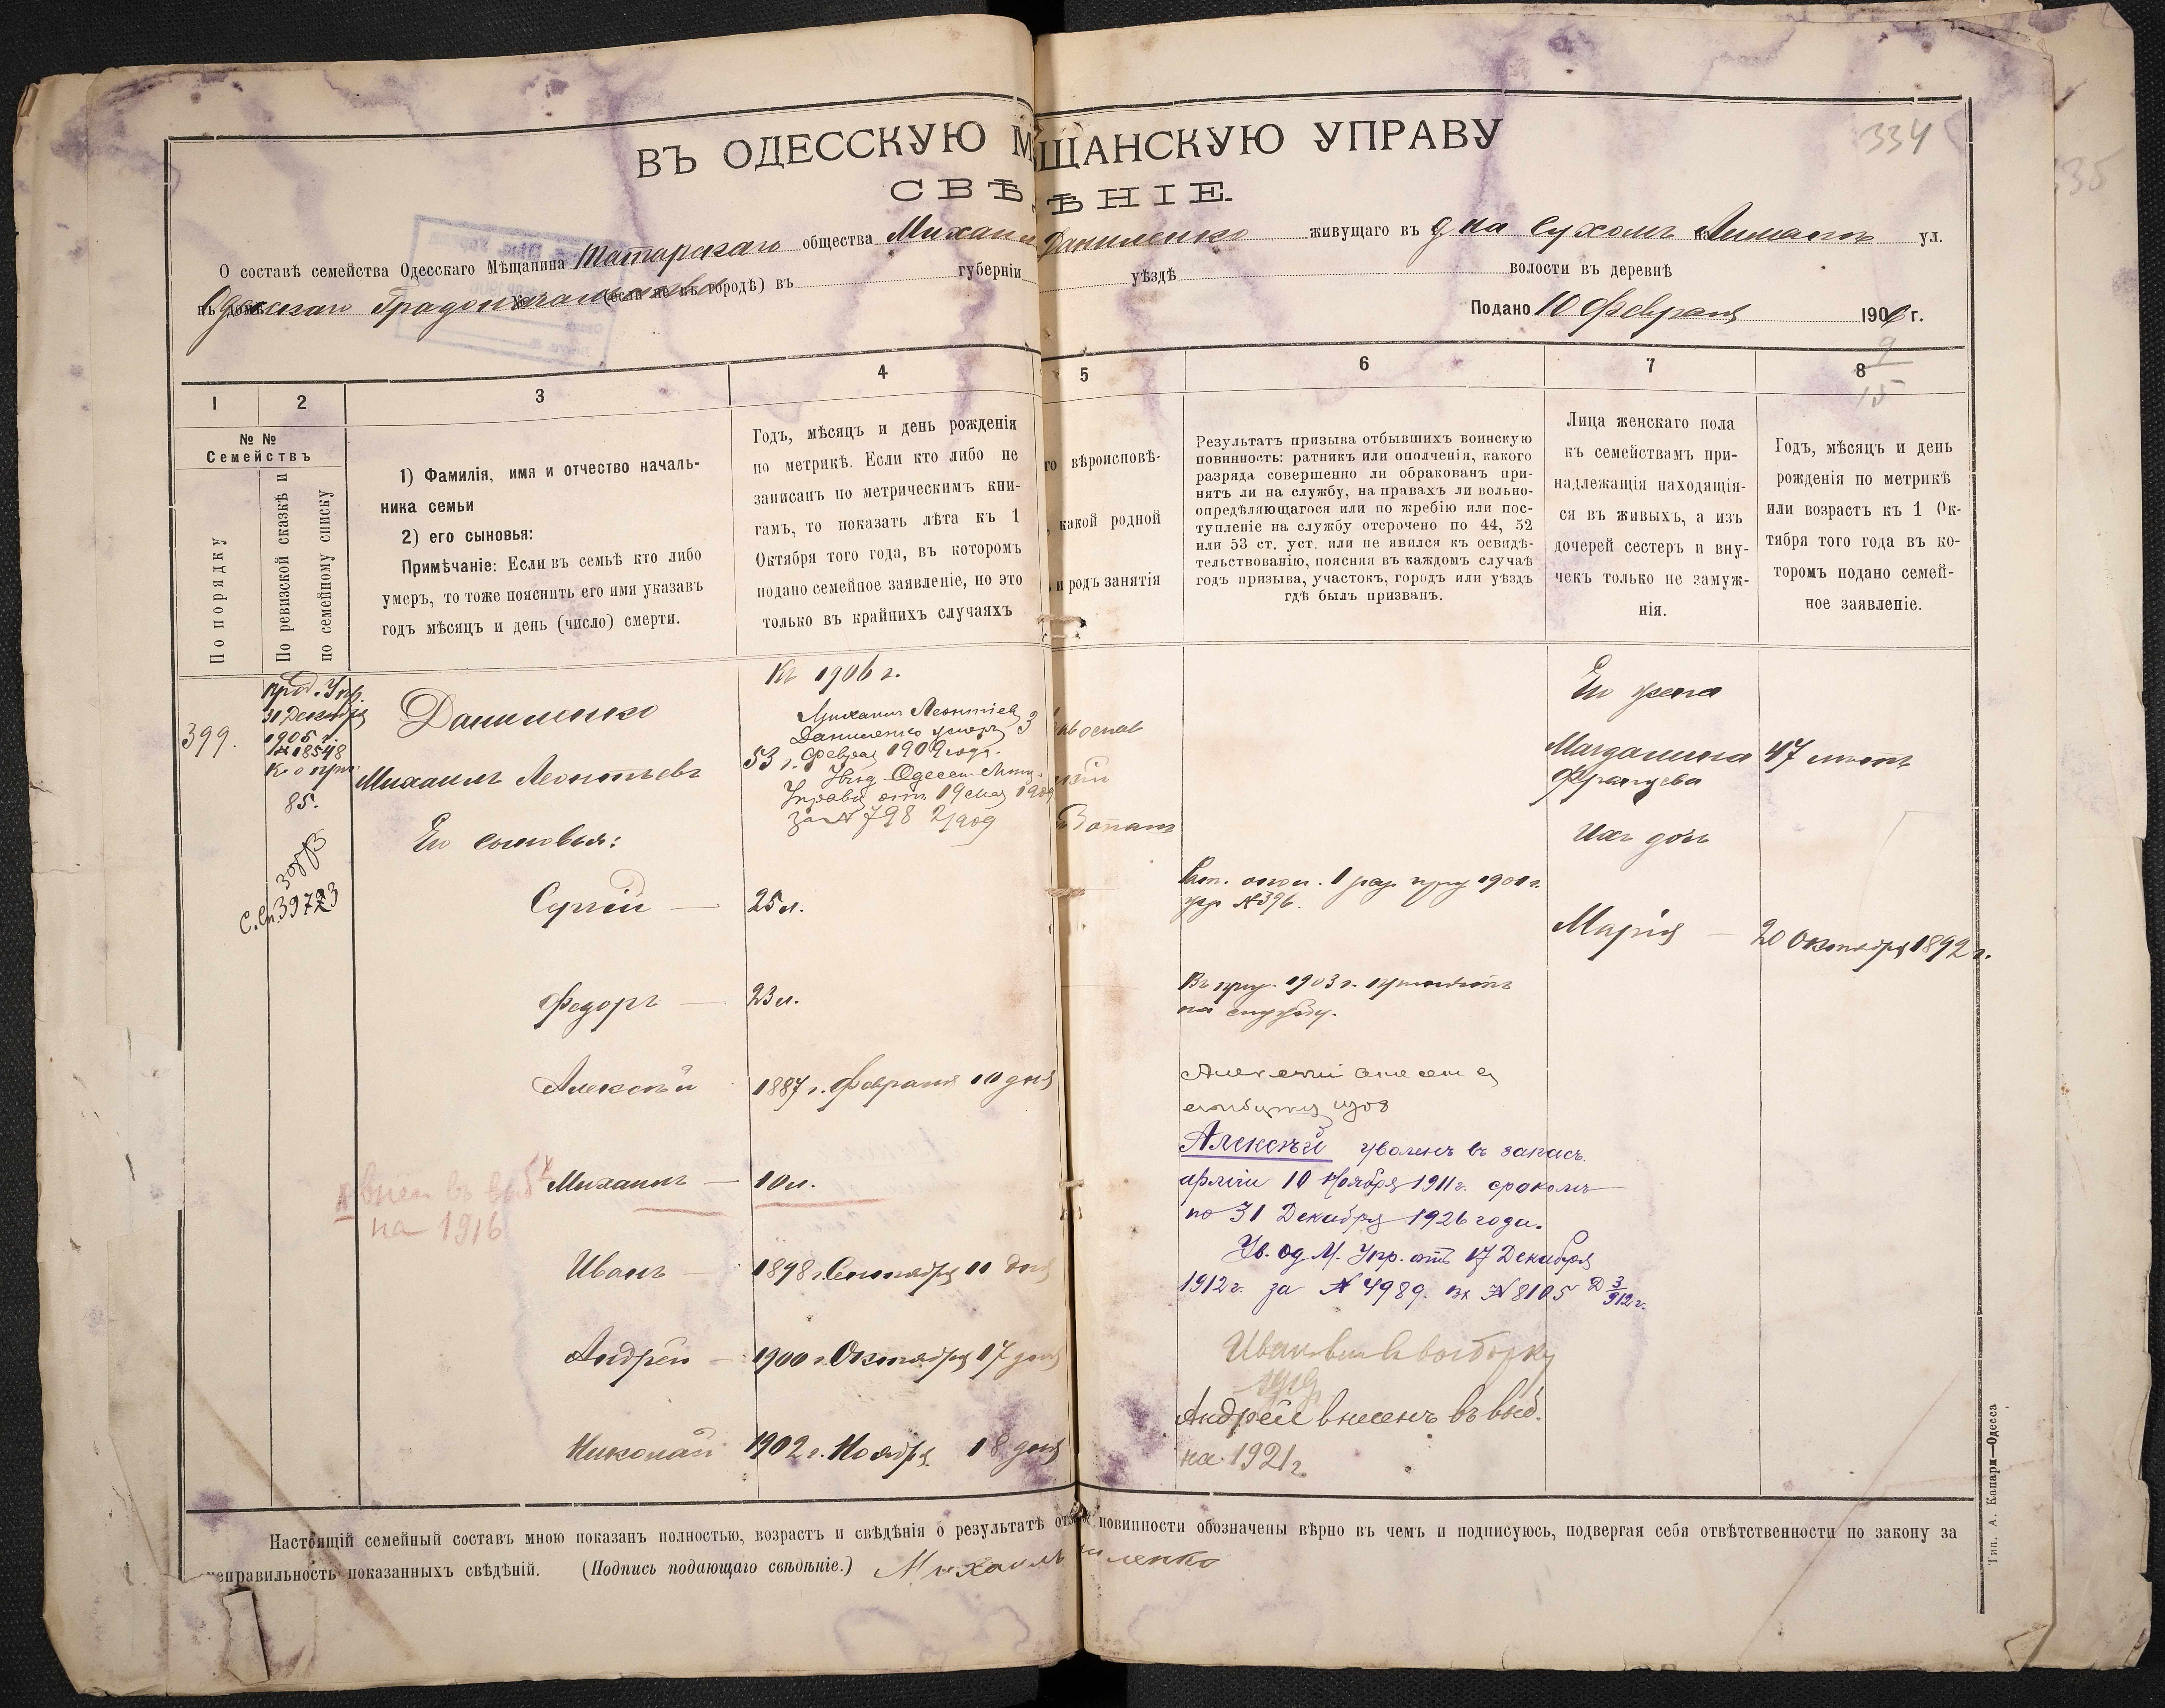 334
ВЪ ОДЕССКУЮ МѢЩАНСКУЮ УПРАВУ
СВѢДѢНІЕ.
О составѣ семейства Одесскаго Мѣщанина Татарскаго общества Михаила Даниленко живущаго въ д на Сухомъ Лиманѣ ул.
Одесскаго Градоначальства (если не въ городѣ) въ губерніи уѣздѣ волости въ деревнѣ
Подано 10 Февраля 1906 г.
9
15
1
2
3
4
5
6
7
8
№ №
Семействъ
По порядку
По ревизской сказкѣ и
по семейному списку
1) Фамилія, имя и отчество началь-
ника семьи
2) его сыновья:
Примѣчаніе: Если въ семьѣ кто либо
умеръ, то тоже пояснить его имя указавъ
годъ мѣсяцъ и день (число) смерти.
Годъ, мѣсяцъ и день рожденія
по метрикѣ. Если кто либо не
записанъ по метрическимъ кни-
гамъ, то показать лѣта къ 1
Октября того года, въ которомъ
подано семейное заявленіе, но это
только въ крайнихъ случаяхъ
вѣроисповѣ-
какой родной
и родъ занятія
Результатъ призыва отбывшихъ воинскую
повинность: ратникъ или ополченія, какого
разряда совершенно ли обракованъ при-
нятъ ли на службу, на правахъ ли вольно-
опредѣляющагося или по жребію или пос-
тупленіе на службу отсрочено по 44, 52
или 53 ст. уст. или не явился къ освидѣ-
тельствованію, поясняя въ каждомъ случаѣ
годъ призыва, участокъ, городъ или уѣздъ
гдѣ былъ призванъ.
Лица женскаго пола
къ семействамъ при-
надлежащія находящія-
ся въ живыхъ, а изъ
дочерей сестеръ и вну-
чекъ только не замуж-
нія.
Годъ, мѣсяцъ и день
рожденія по метрикѣ
или возрастъ къ 1 Ок-
тября того года въ ко-
торомъ подано семей-
ное заявленіе.
399.
пред. Упр.
31 Декабря
1905 г.
№ 18548
85.
С. Сп. 39723
Даниленко
Михаилъ Леонтьевъ
Его сыновья:
Къ 1906 г.
Михаилъ Леонтіев
Даниленко умеръ 3
53 г. Февраля 1909 года.
Увѣд. Одесск. Мѣщ.
Управы отъ 19 Мая 1909
за № 798
Его жена
Магдалина 47 лѣтъ
Францева
Ихъ дочь
Марія — 20 Октября 1892 г.
Сергій — 25 л.
Рат. опол. 1 раз. приз. 1901 г.
жр. № 396.
Федоръ — 23 л.
Въ приз. 1903 г. принятъ
на службу.
Алексѣй 1887 г. Февраля 10 дня
Алексѣй
Алексѣй уволенъ въ запасъ
арміи 10 Ноября 1911 г. срокомъ
по 31 Декабря 1926 года.
Ув. Од. М. Упр. отъ 17 Декабря
1912 г. за № 4989. вх № 8105 Д 3/912 г.
внес въ выб
на 1916
Михаилъ — 10 л.
Иванъ — 1898 г. Сентября 11 дня
Андрей — 1900 г. Октября 17 дня
Николай 1902 г. Ноября 18 дня
Иван вн въ выборку
1919
Андрей внесенъ въ выб.
на 1921 г.
Настоящій семейный составъ мною показанъ полностью, возрастъ и свѣдѣнія о результатѣ повинности обозначены вѣрно въ чемъ и подписуюсь, подвергая себя отвѣтственности по закону за
неправильность показанныхъ свѣдѣній. (Подпись подающаго свѣдѣніе.) Михаилъ
Тип. А. Капари—Одесса